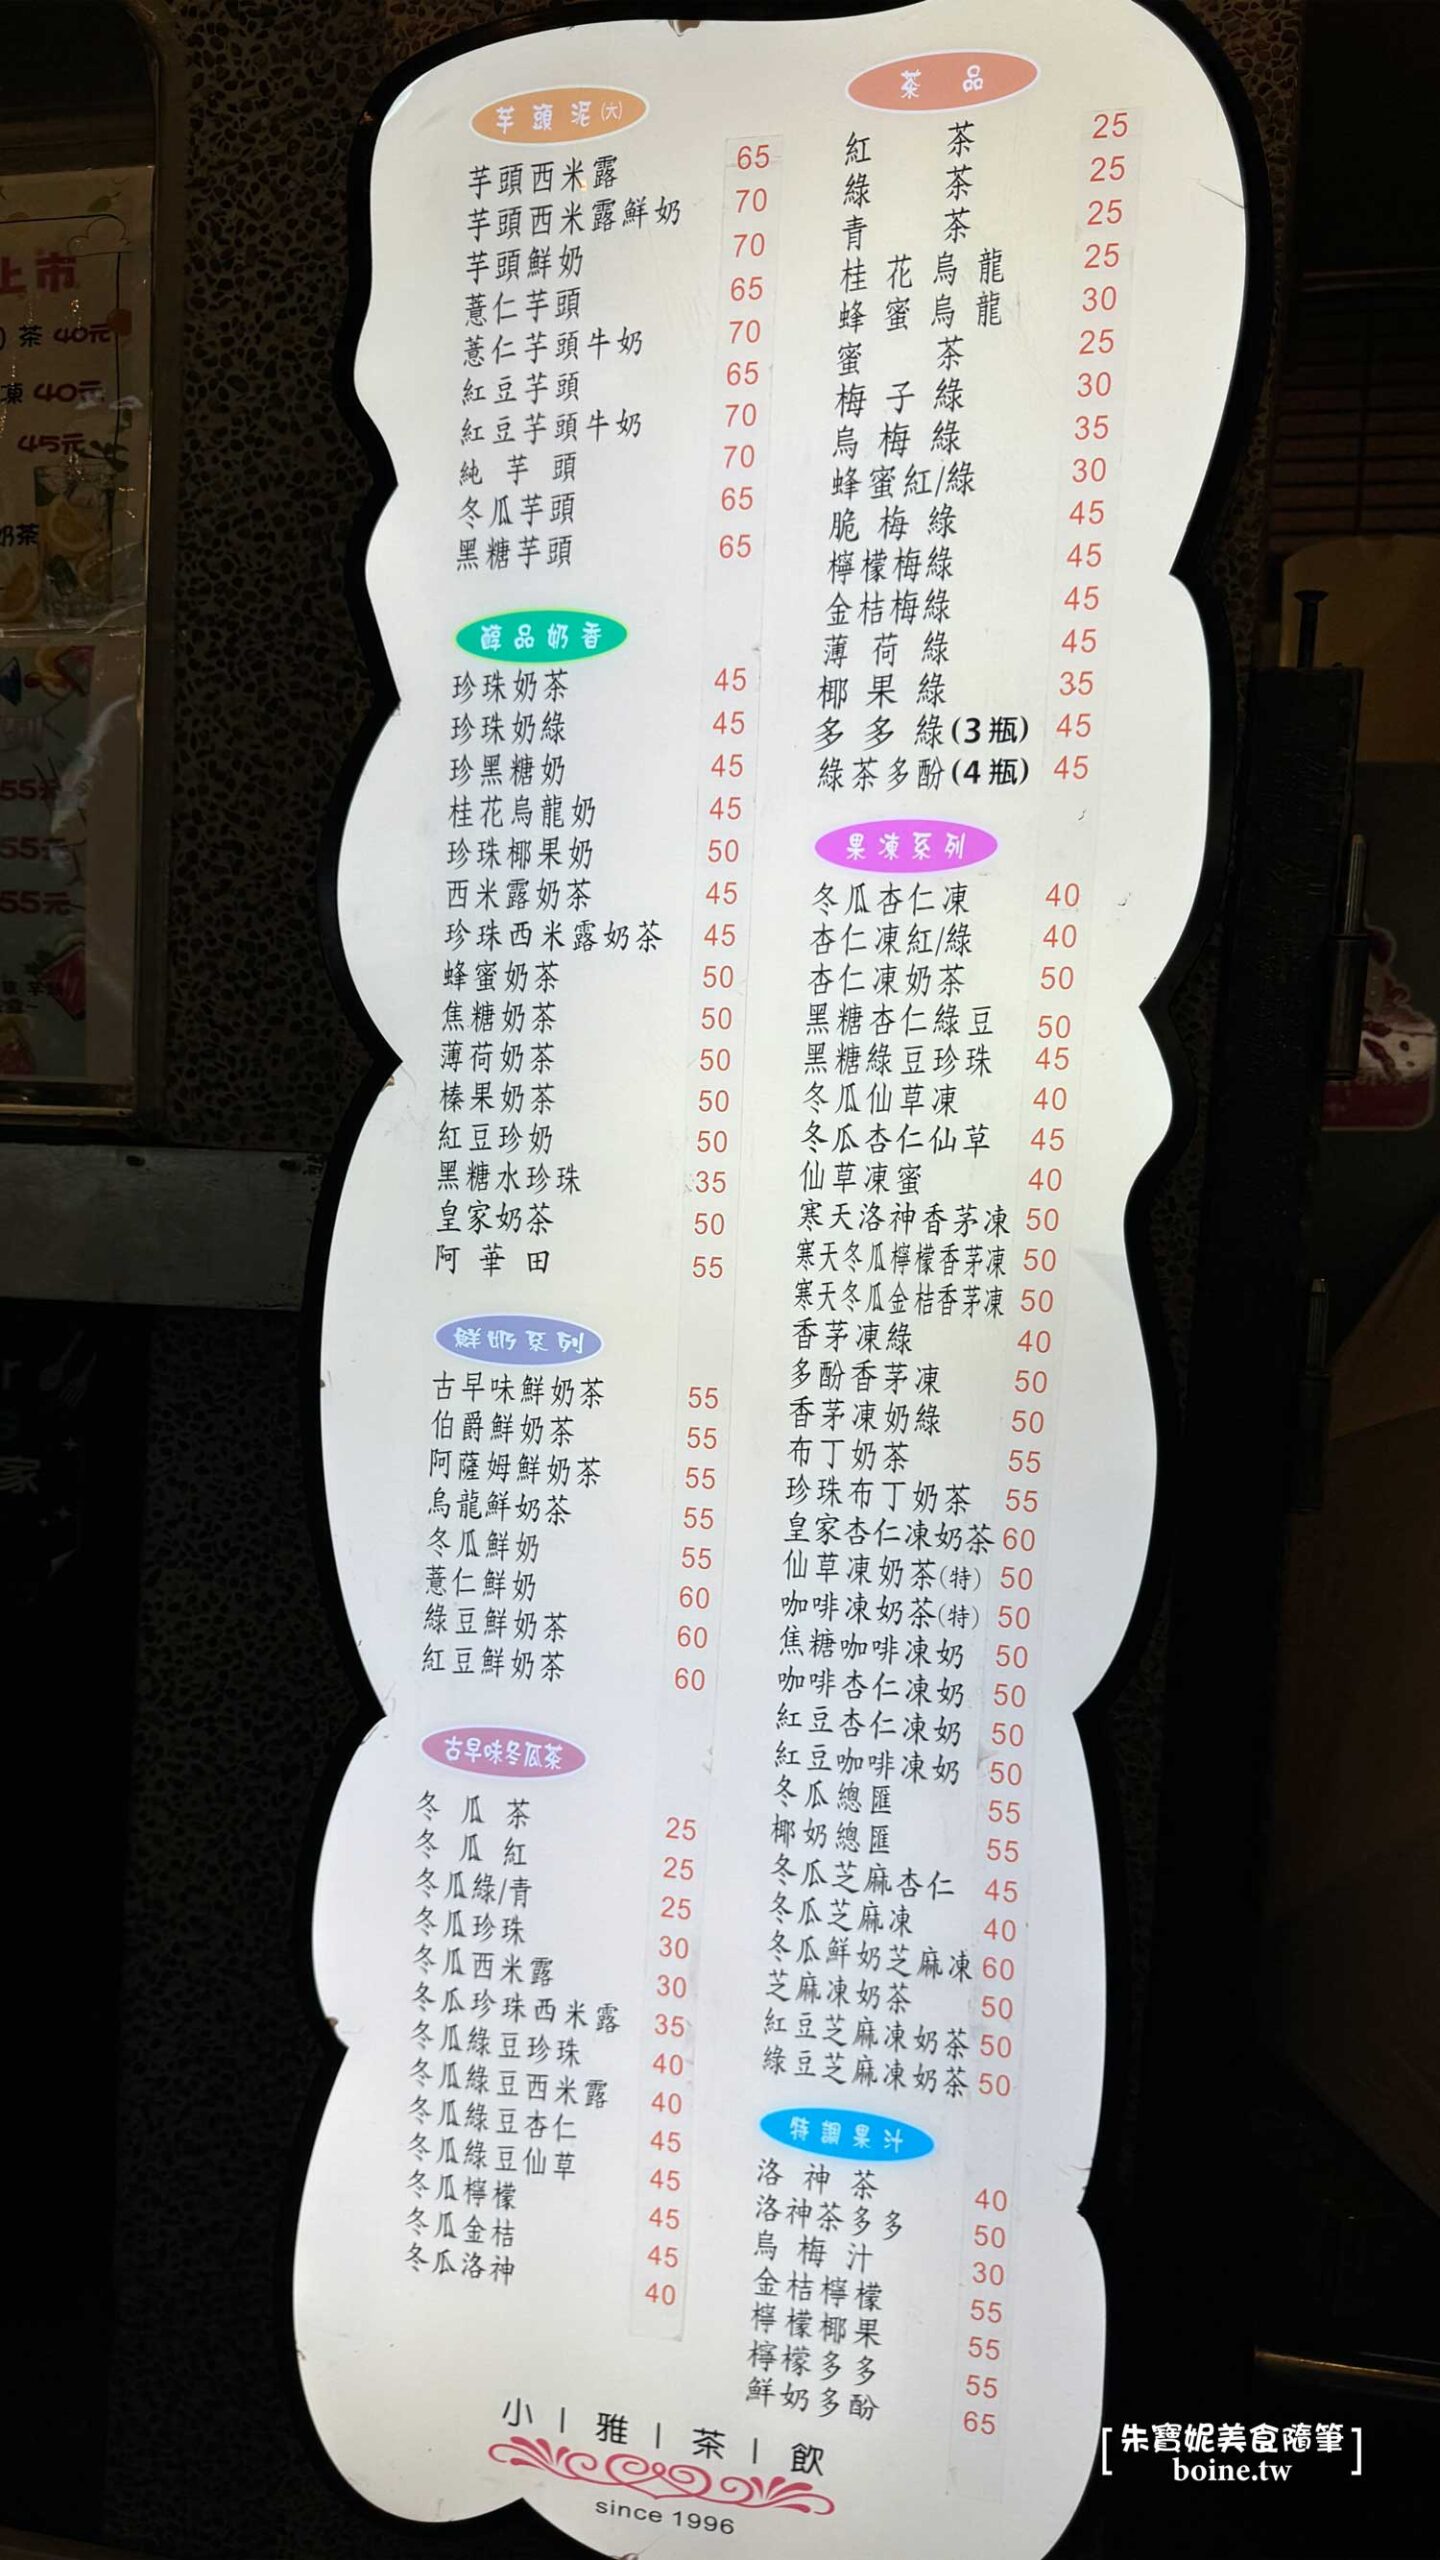 芋頭泥(大)
芋頭西米露 65
芋頭西米露鮮奶 70
芋頭鮮奶 70
薏仁芋頭 65
薏仁芋頭牛奶 70
紅豆芋頭 65
紅豆芋頭牛奶 70
純芋頭 70
冬瓜芋頭 65
黑糖芋頭 65
醇品奶香
珍珠奶茶 45
珍珠奶綠 45
珍黑糖奶 45
桂花烏龍奶 45
珍珠椰果奶 50
西米露奶茶 45
珍珠西米露奶茶 45
蜂蜜奶茶 50
焦糖奶茶 50
薄荷奶茶 50
榛果奶茶 50
紅豆珍奶 50
黑糖水珍珠 35
皇家奶茶 50
阿華田 55
鮮奶系列
古早味鮮奶茶 55
伯爵鮮奶茶 55
阿薩姆鮮奶茶 55
烏龍鮮奶茶 55
冬瓜鮮奶 55
薏仁鮮奶 60
綠豆鮮奶茶 60
紅豆鮮奶茶 60
古早味冬瓜茶
冬瓜茶 25
冬瓜紅 25
冬瓜綠/青 25
冬瓜珍珠 30
冬瓜西米露 30
冬瓜珍珠西米露 35
冬瓜綠豆珍珠 40
冬瓜綠豆西米露 40
冬瓜綠豆杏仁 45
冬瓜綠豆仙草 45
冬瓜檸檬 45
冬瓜金桔 45
冬瓜洛神 40
茶品
紅茶 25
綠茶 25
青茶 25
桂花烏龍 25
蜂蜜烏龍 30
蜜茶 25
梅子綠 30
烏梅綠 35
蜂蜜紅/綠 30
脆梅綠 45
檸檬梅綠 45
金桔梅綠 45
薄荷綠 45
椰果綠 35
多多綠(3瓶) 45
綠茶多酚(4瓶) 45
果凍系列
冬瓜杏仁凍 40
杏仁凍紅/綠 40
杏仁凍奶茶 50
黑糖杏仁綠豆 50
黑糖綠豆珍珠 45
冬瓜仙草凍 40
冬瓜杏仁仙草 45
仙草凍蜜 40
寒天洛神香茅凍 50
寒天冬瓜檸檬香茅凍 50
寒天冬瓜金桔香茅凍 50
香茅凍綠 40
多酚香茅凍 50
香茅凍奶綠 50
布丁奶茶 55
珍珠布丁奶茶 55
皇家杏仁凍奶茶 60
仙草凍奶茶(特) 50
咖啡凍奶茶(特) 50
焦糖咖啡凍奶 50
咖啡杏仁凍奶 50
紅豆杏仁凍奶 50
紅豆咖啡凍奶 50
冬瓜總匯 55
椰奶總匯 55
冬瓜芝麻杏仁 45
冬瓜芝麻凍 40
冬瓜鮮奶芝麻凍 60
芝麻凍奶茶 50
紅豆芝麻凍奶茶 50
綠豆芝麻凍奶茶 50
特調果汁
洛神茶 40
洛神茶多多 50
烏梅汁 30
金桔檸檬 55
檸檬椰果 55
檸檬多多 55
鮮奶多酚 65
小|雅|茶|飲
since 1996
上市
茶 40元
凍 40元
45元
奶茶
55元
55元
55元
家
[朱寶妮美食隨筆]
boine.tw